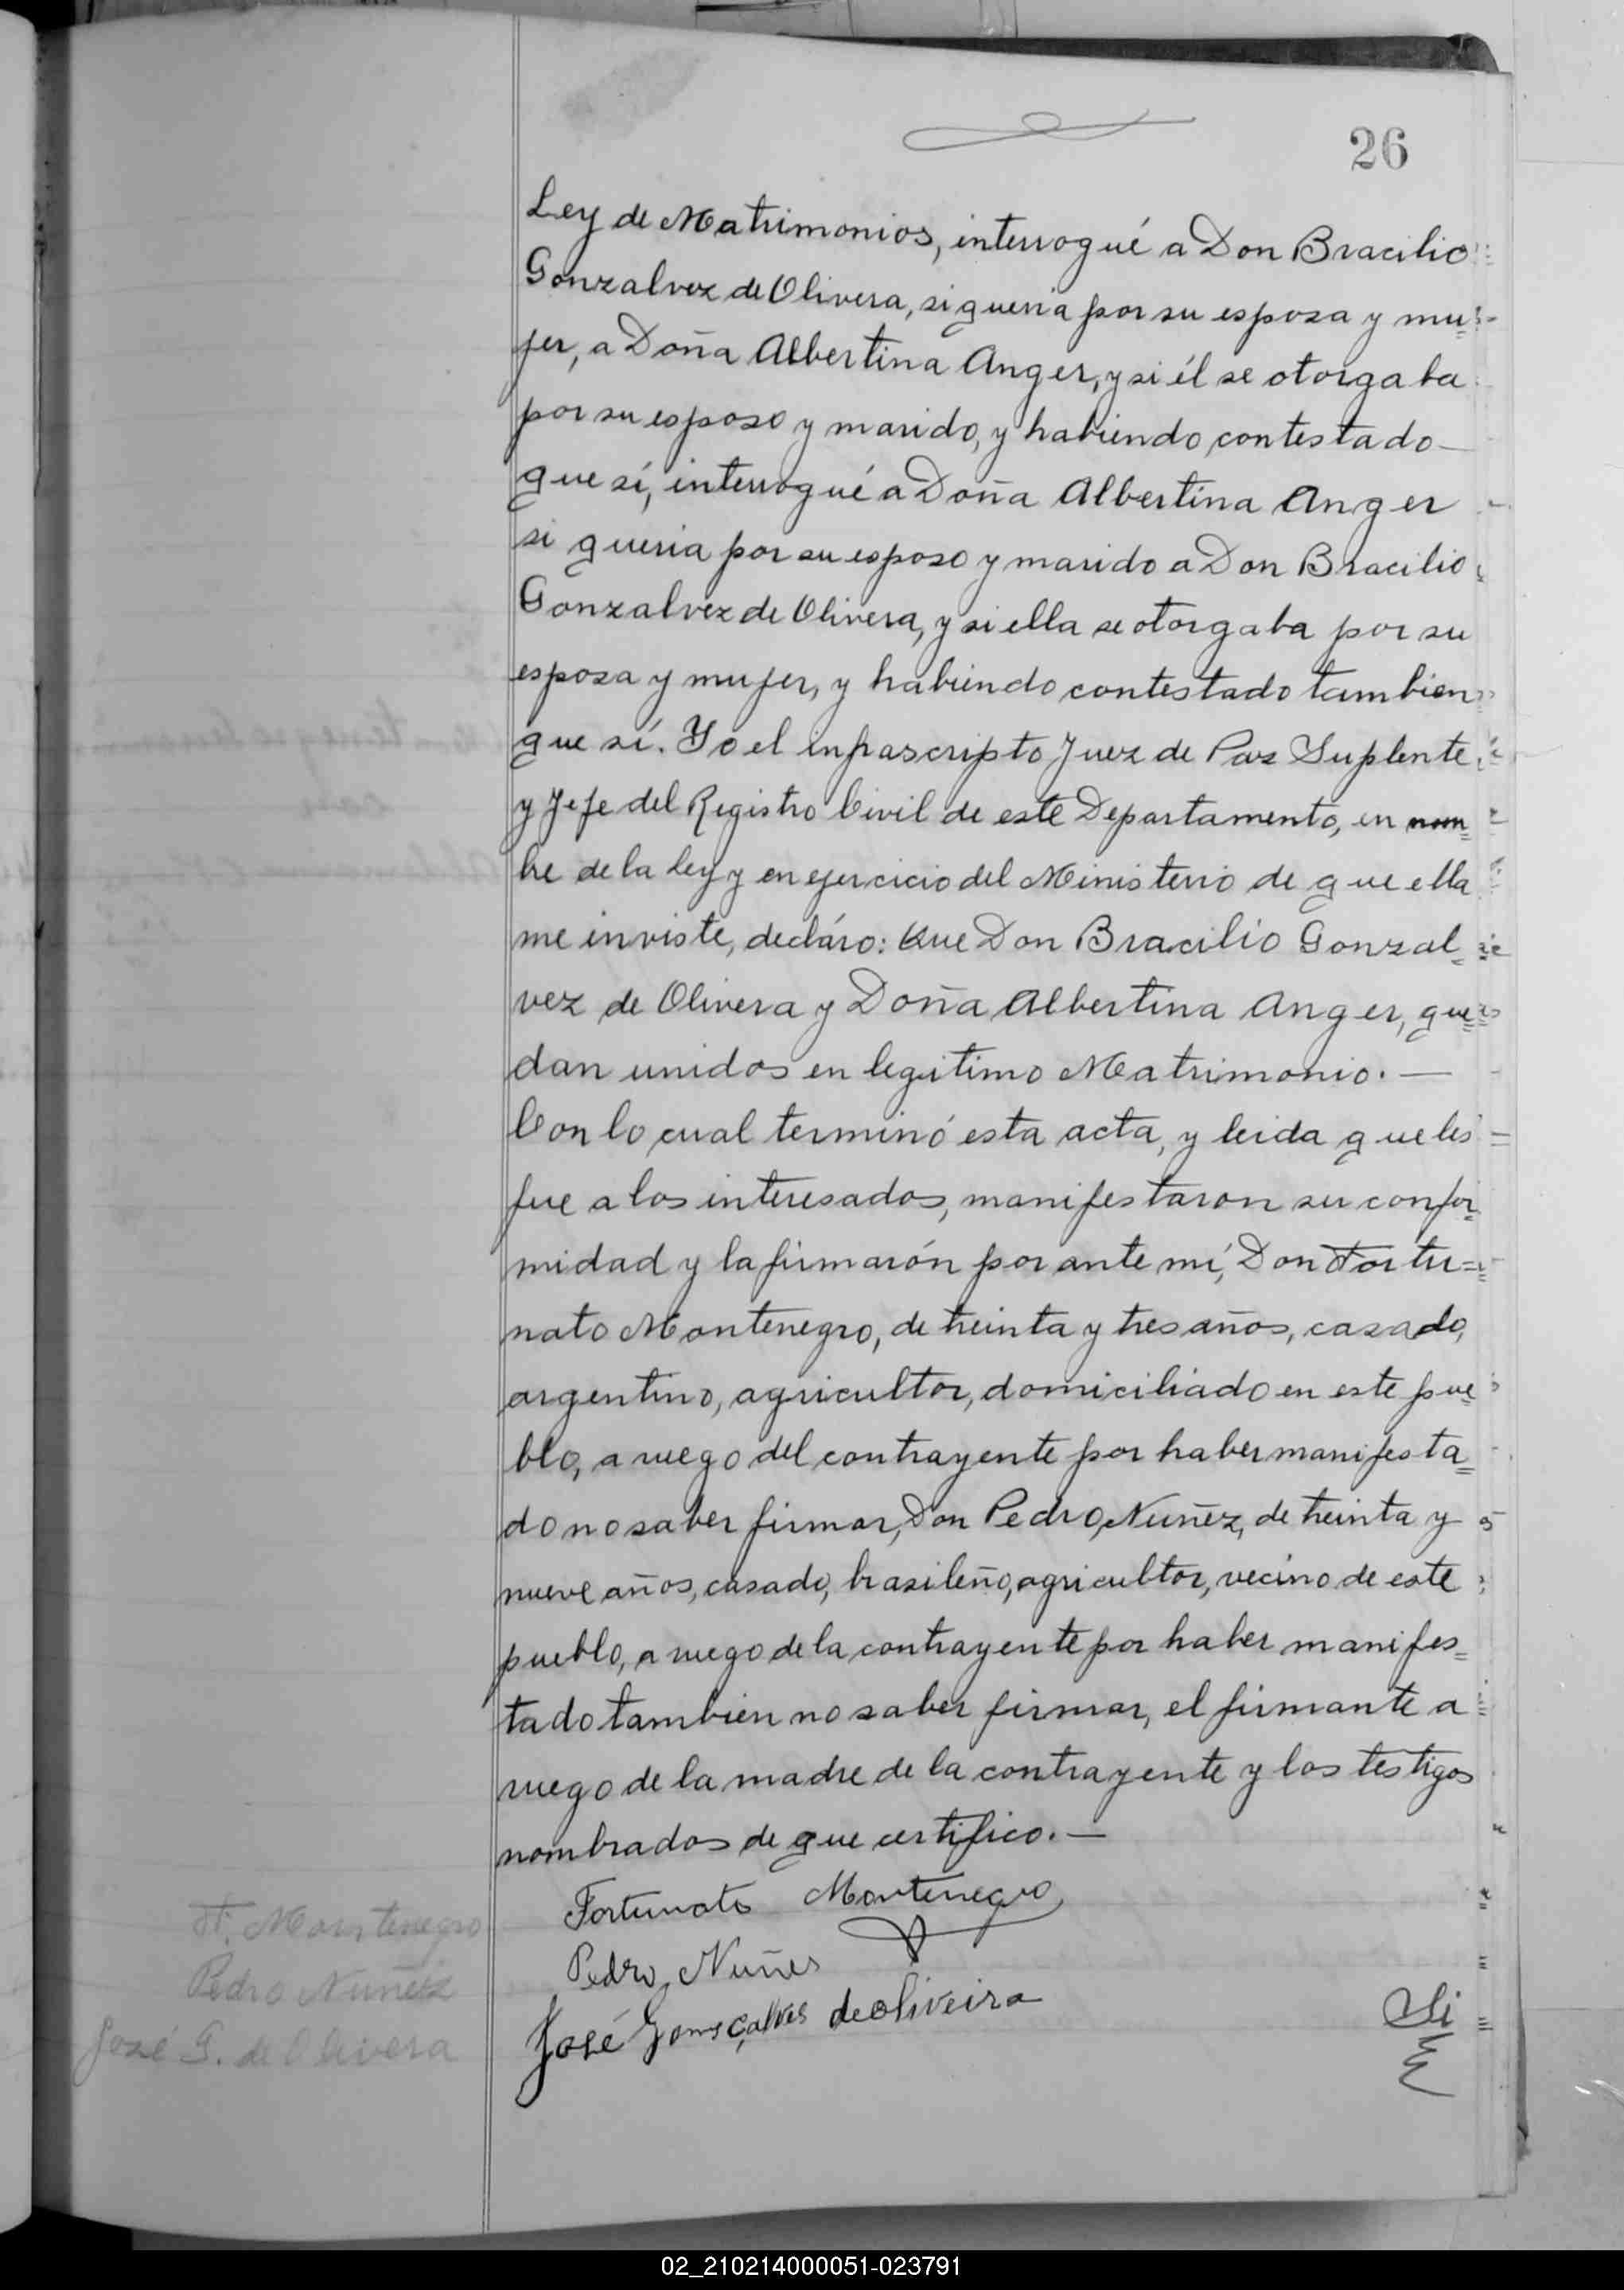 26
Ley de Matrimonios, interrogué a Don Bracilio
Gonzalvez de Olivera, si queria por su esposa y mu-
jer, a Doña Albertina Anger, y si él se otorgaba
por su esposo y marido, y habiendo contestado
que sí, interrogué a Doña Albertina Anger
si queria por su esposo y marido a Don Bracilio
Gonzalvez de Olivera, y si ella se otorgaba por su
esposa y mujer, y habiendo contestado tambien
que sí. Yo el infrascripto Juez de Paz Suplente
y Jefe del Registro Civil de este Departamento, en nom=
bre de la Ley y en ejercicio del Ministerio de que ella
me inviste, decláro: Que Don Bracilio Gonzal=
vez de Olivera y Doña Albertina Anger, que=
dan unidos en legitimo Matrimonio.—
Con lo cual terminó esta acta, y leida que les
fue a los interesados, manifestaron su confor=
midad y la firmarón por ante mí, Don Fortu=
nato Montenegro, de treinta y tres años, casado,
argentino, agricultor, domiciliado en este pue=
blo, a ruego del contrayente por haber manifesta=
do no saber firmar, Don Pedro Nuñez, de treinta y
nueve años, casado, brasileño, agricultor, vecino de este
pueblo, a ruego de la contrayente por haber manifes=
tado tambien no saber firmar, el firmante a
ruego de la madre de la contrayente y los testigos
nombrados de que certifico.—
Fortunato Montenegro
Pedro Nuñes
José Gomsçalves de oliveira
F. Montenegro
Pedro Nuñez
José G. de Olivera
Si
02_210214000051-023791